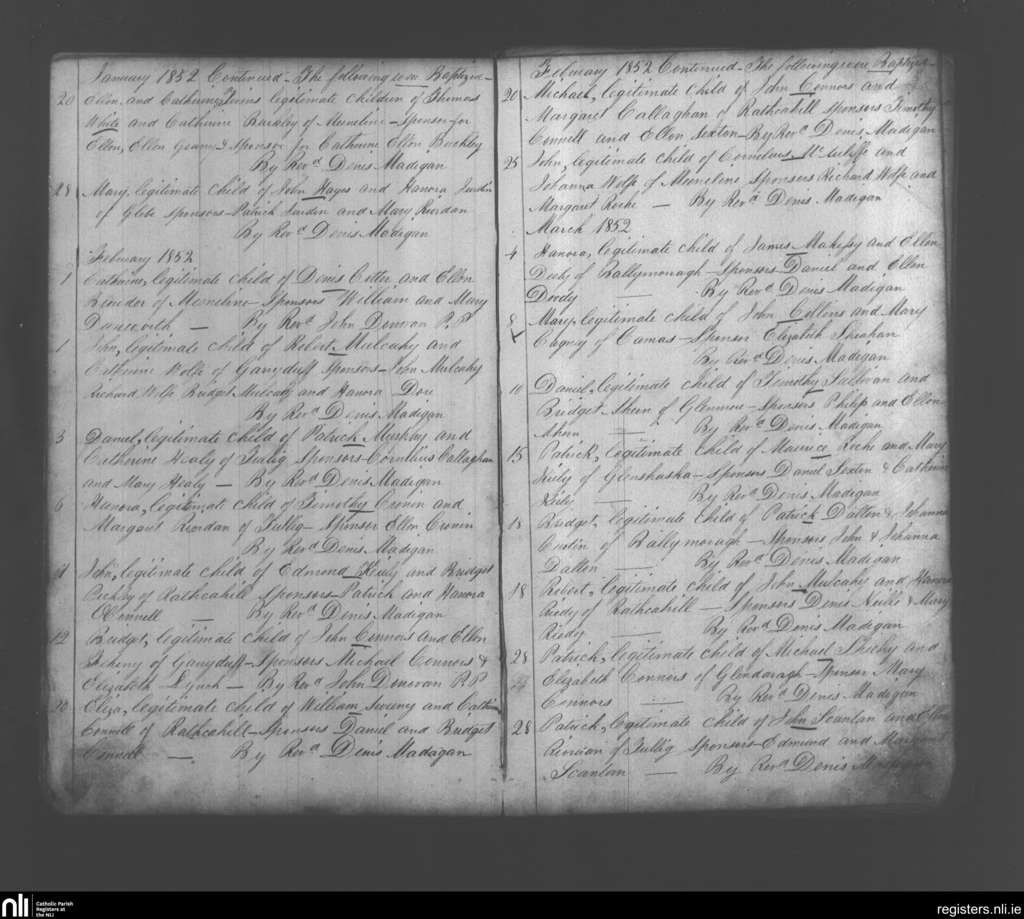 January 1852 Continued - The following were Baptized -
20 Ellen, and Catherine, Twins legitimate children of Thomas
White and Catherine Buckley of Meeneline - Sponsor for
Ellen, Ellen Geany & Sponsor for Catherine Ellen Buckley
By Revd Denis Madigan
28 Mary, legitimate child of John Hayes and Hanora
of Glebe Sponsors - Patrick and Mary Riordan
By Revd Denis Madigan
February 1852
1 Catherine, legitimate child of Denis Cotter and Ellen
of Meeneline - Sponsors William and Mary
Danworth — By Revd John Donovan P.P
1 John, legitimate child of Robert Mulcahy and
Catherine Wolfe of Garryduff Sponsors - John Mulcahy
Richard Wolfe Bridget Mulcahy and Hanora
By Revd Denis Madigan
3 Daniel, legitimate child of Patrick Murray and
Catherine Healy of Sponsors - Cornelius Callaghan
and Mary Healy — By Revd Denis Madigan
6 Hanora, legitimat child of Timothy Cronin and
Margaret Riordan of - Sponsor Ellen Cronin
By Revd Denis Madigan
11 John, legitimate child of Edmond and Bridget
of Rathcahill Sponsors - Patrick and Hanora
OConnell — By Revd Denis Madigan
12 Bridget, legitimate child of John Connors and Ellen
of Garryduff - Sponsors Michael Connors &
Elizabeth Lynch — By Revd John Donovan P.P
20 Eliza, legitimate child of William Sweeny and Cath
Connell of Rathcahill - Sponsors Daniel and Bridget
Connell — By Revd Denis Madagan
February 1852 Continued - The following were Baptized -
20 Michael, legitimate child of John Connors and
Margaret Callaghan of Rathcahill Sponsors Timothy
Connell and Ellen Sexton - By Revd Denis Madigan
25 John, legitimate child of Cornelius McAuliffe and
Johanna Wolfe of Meeneline Sponsors Richard Wolfe and
Margaret Roche — By Revd Denis Madigan
March 1852
4 Hanora, legitimate child of James and Ellen
of Ballymonagh - Sponsors Daniel and Ellen
— By Revd Denis Madigan
8 Mary, legitimate child of John Collins and Mary
of Camas - Sponsor Elizabeth Sheahan
By Revd Denis Madigan
10 Daniel, legitimate child of Timothy Sullivan and
Bridget Ahern of - Sponsors Philip and Ellen
Ahern — By Revd Denis Madigan
15 Patrick, legitimate child of Maurice Roche and Mary
Kiely of Glenshaska - Sponsors Daniel Sexton & Catherine
Kiely — By Revd Denis Madigan
18 Bridget, legitimate child of Patrick Dalton & Johanna
Curtin of Ballymonagh - Sponsors John & Johanna
Dalton — By Revd Denis Madigan
18 Robert, legitimate child of John Mulcahy and Hanora
Riedy of Rathcahill — Sponsors Denis & Mary
Riedy — By Revd Denis Madigan
28 Patrick, legitimate child of Michael Sheehy and
Elizabeth Connors of Glendaragh - Sponsor Mary
Connors — By Revd Denis Madigan
28 Patrick, legitimate child of John Scanlan and Ellen
of Sponsors - Edmund and
Scanlan — By Revd Denis Madigan
nli
Catholic Parish
Registers at
the NLI
registers.nli.ie